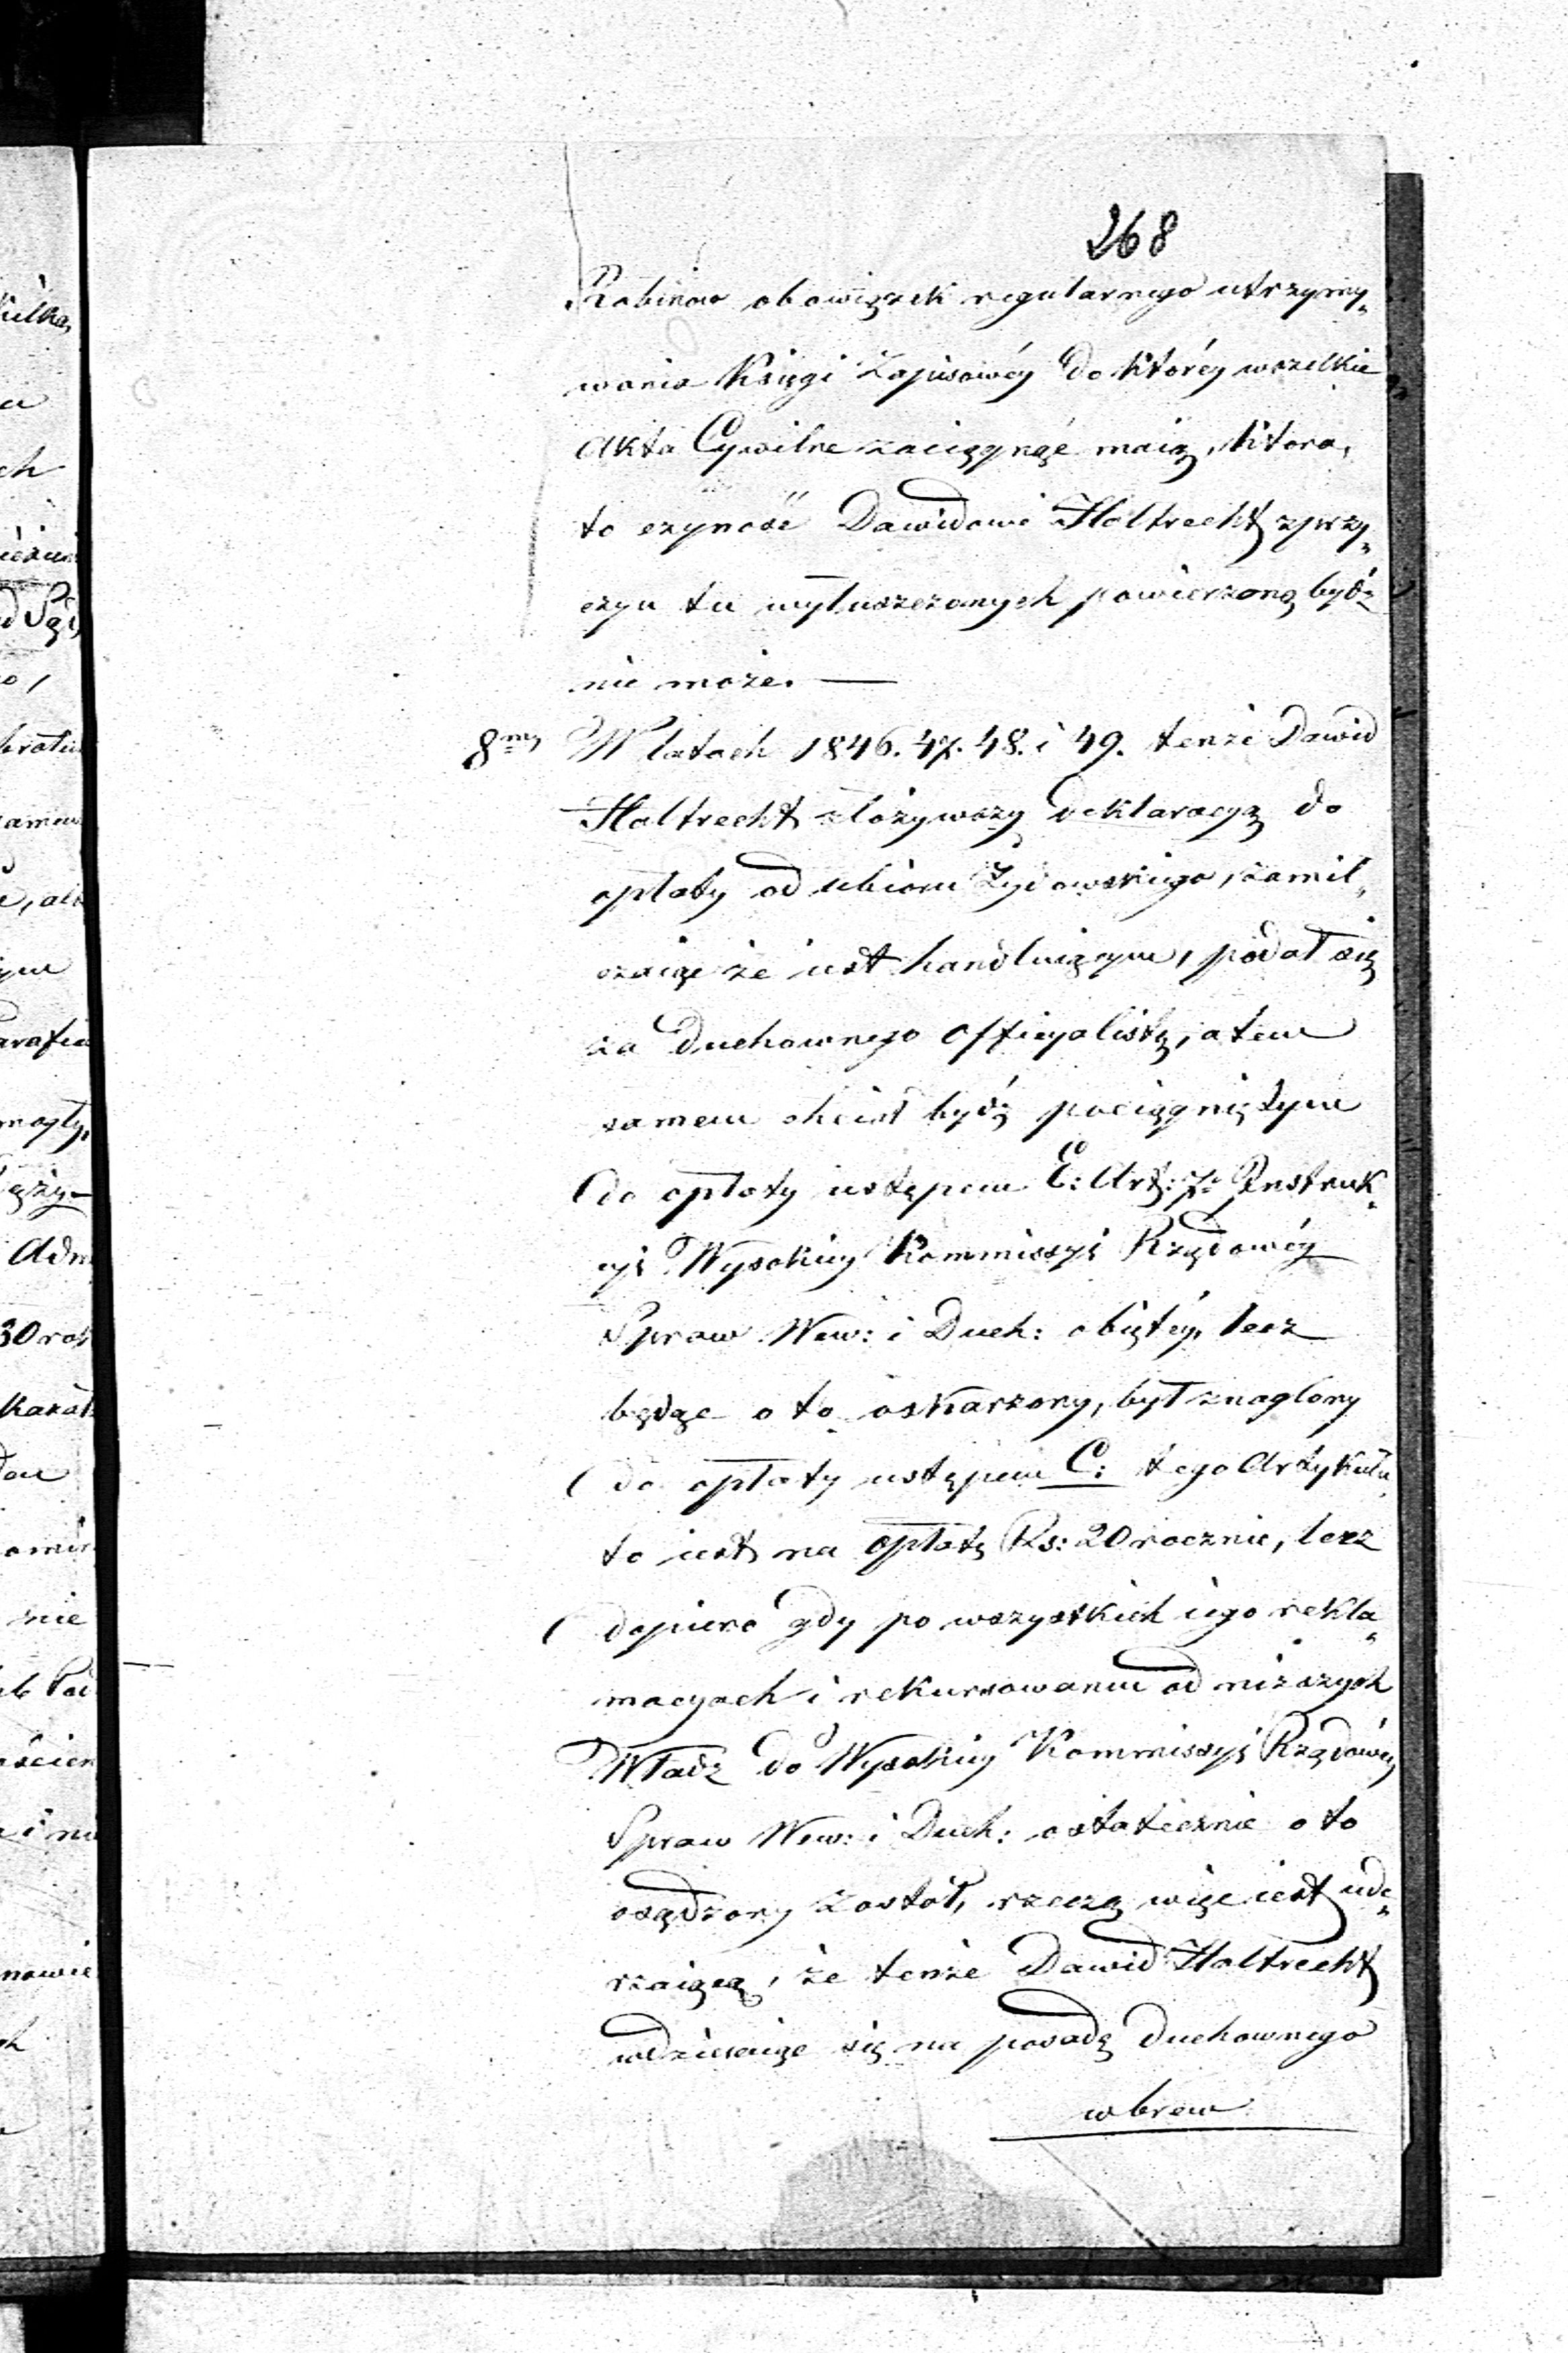 268
Rabinow obowiązek regularnego utrzymy„
wania Księgi Zapisowéy do któréy wszelkie
Akta Cywilne zaciągnąć maią, która„
to czyność Dawidowi Holtrecht z przy„
czyn tu wyłuszczonych powierzoną bydź
nie może. —
8my W latach 1846. 47. 48. i 49. tenże Dawid
Holtrecht złożywszy deklaracyą do
opłaty od ubioru Żydowskiego, zamil„
czaiąc że iest handluiącym, podał się
za Duchownego Officyalistę, a tem
samem chciał bydź pociągniętym
do opłaty ustępem E: Art: 7o Instruk„
cyi Wysokiey Kommissyi Rządowéy
Spraw Wew: i Duch: obiętéy, lecz
będąc o to oskarzony, był znaglony
do opłaty ustępem C: tego Artykułu
to iest na opłatę Rs: 20 rocznie, lecz
dopiero gdy po wszystkich iego rekla„
macyach i rekursowaniu od niższych
Władz do Wysokiey Kommissyi Rządowéy
Spraw Wew: i Duch: ostatecznie o to
osądzony został, rzeczą więc iest ude„
rzaiącą, że tenże Dawid Holtrecht
wdzieraiąc się na posadę Duchownego
wbrew